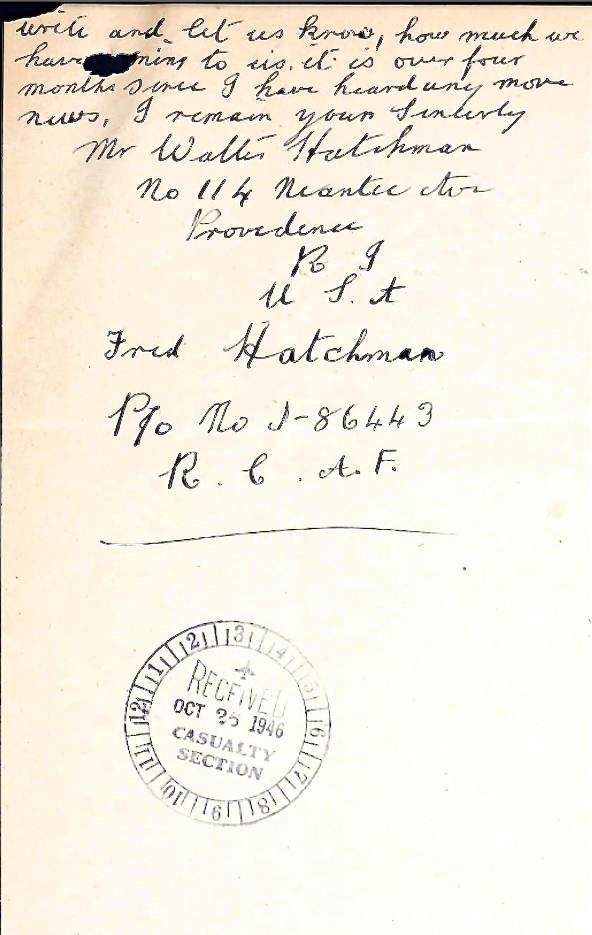 write and let us know, how much we
have ming to us. it is over four
months since I have heard any more
news, I remain yours Sincerly
Mr Walter Hatchman
No 114 Neantic Ave
Providence
R I
U S. A
Fred Hatchman
P/o No J-86443
R. C. A. F.
12 1 2 3 4 5 6 7 8 9 10 11
RECEIVED
OCT 25 1946
CASUALTY
SECTION